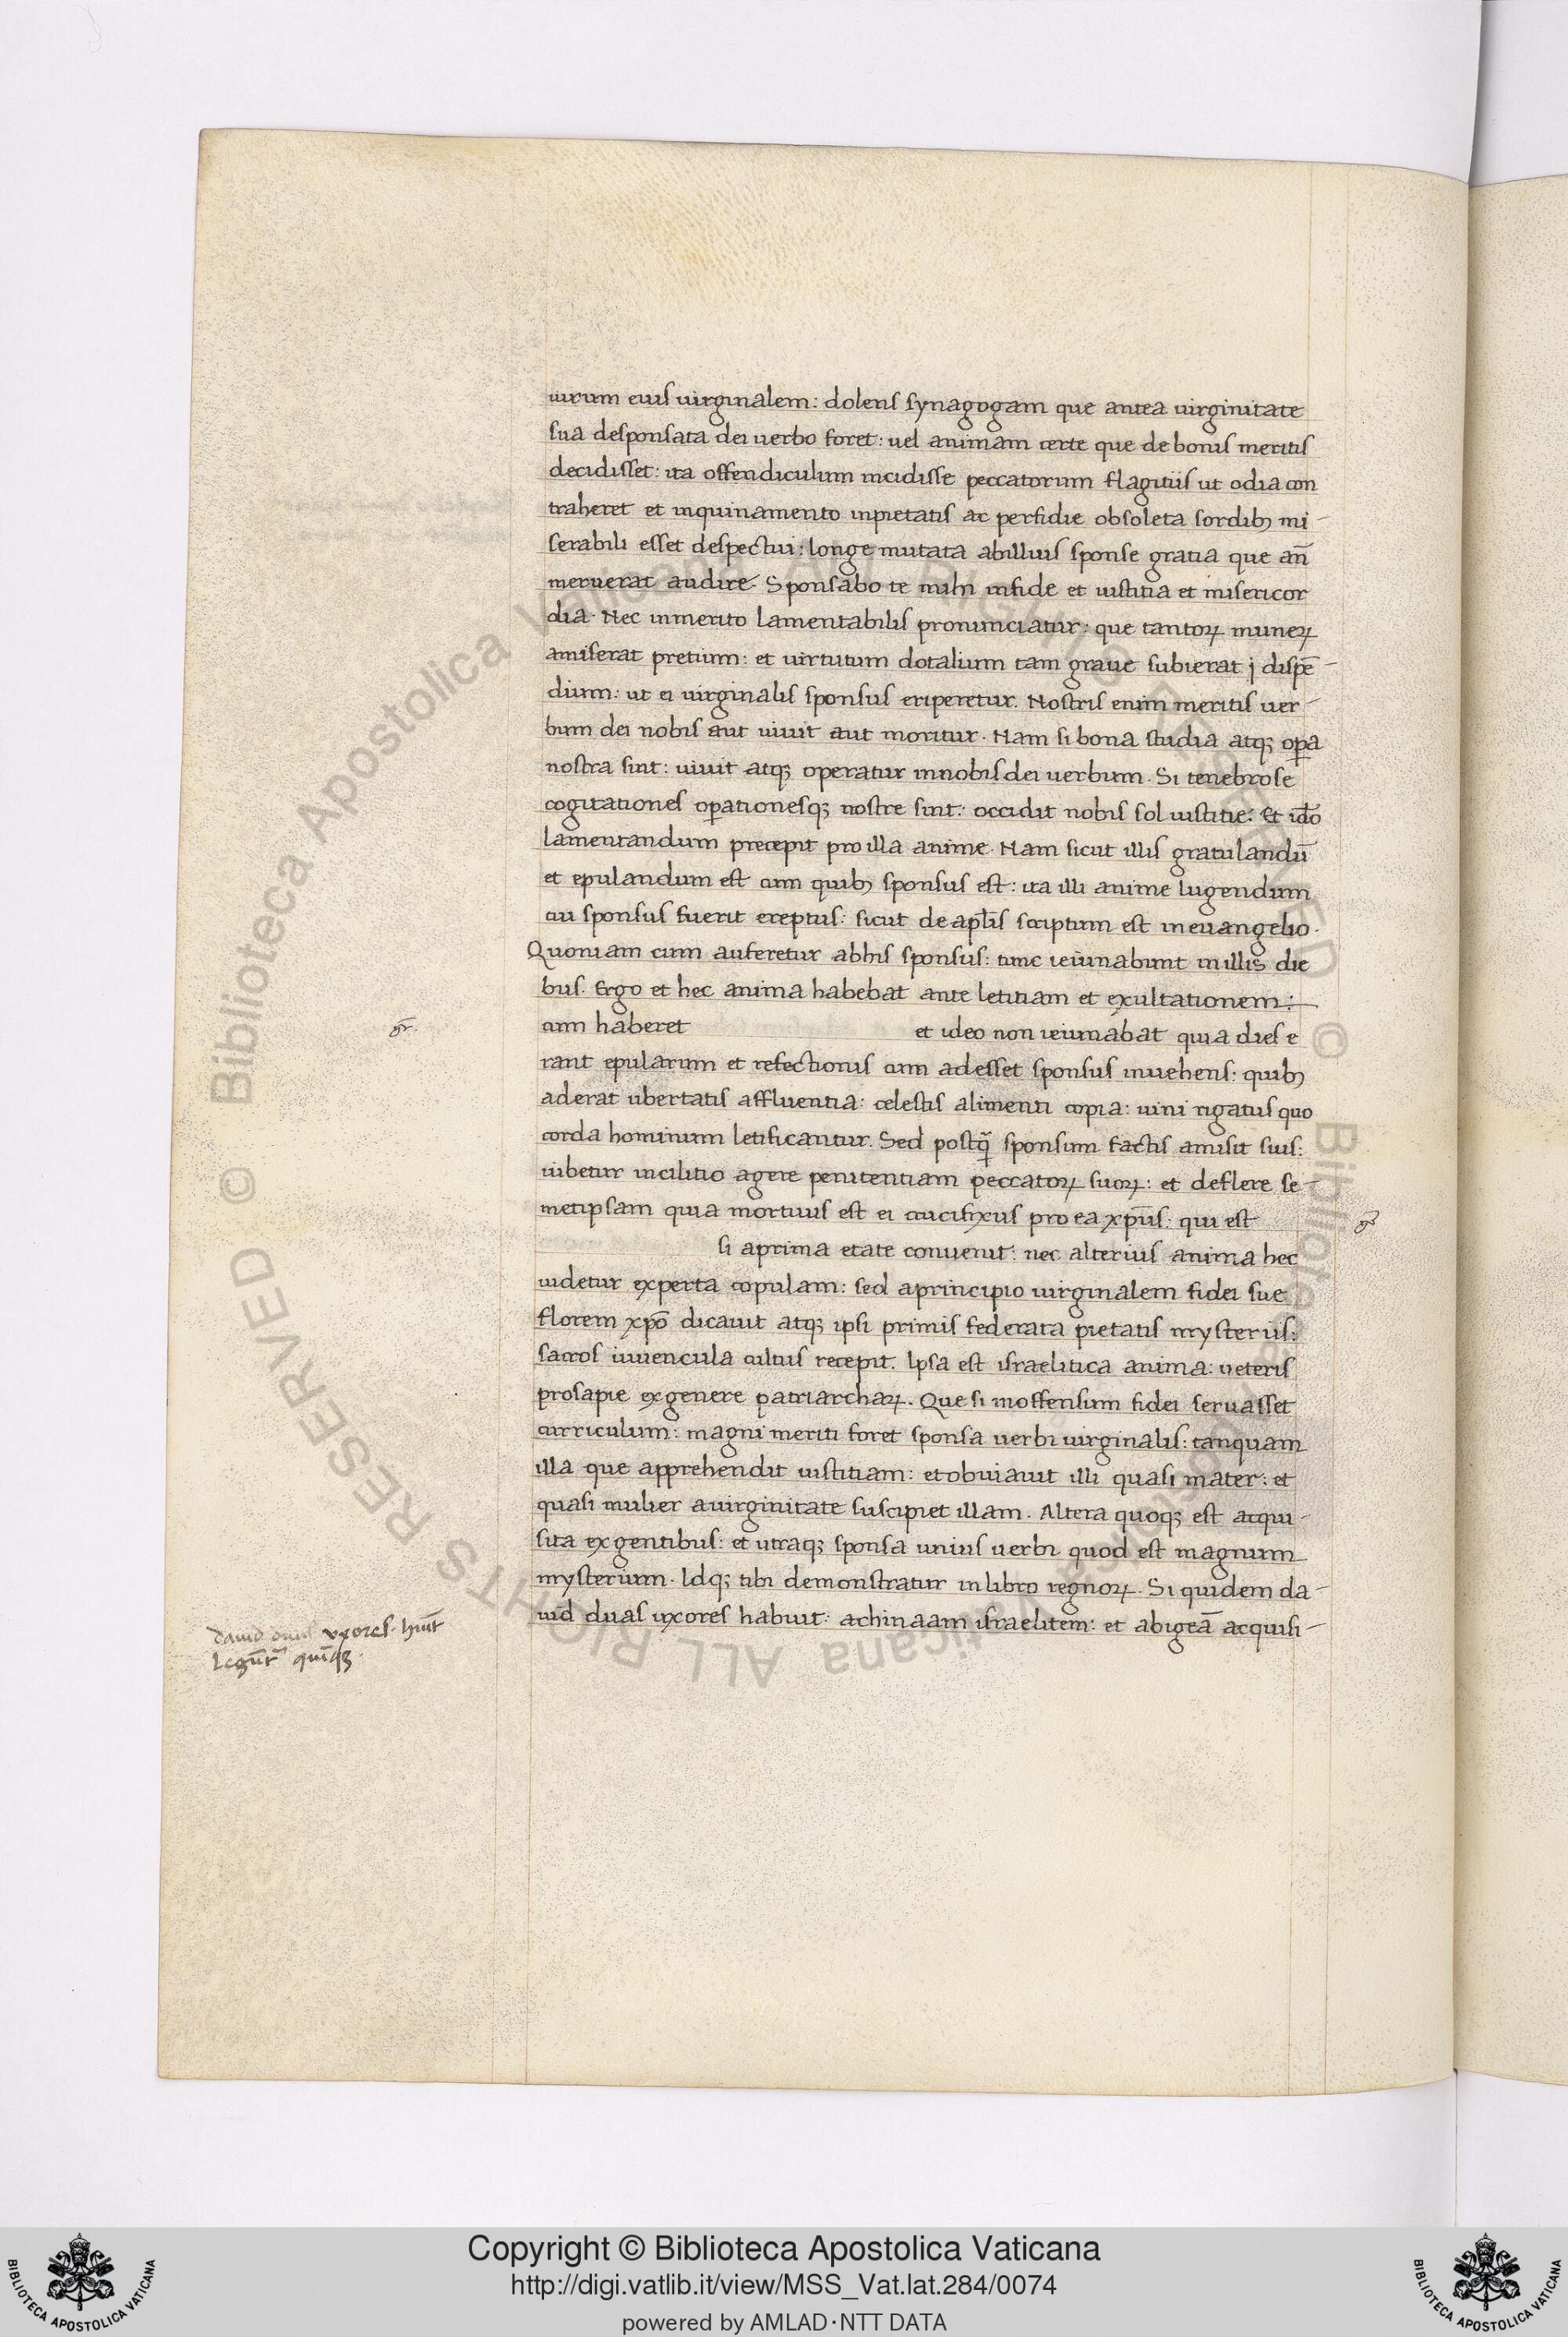 uirum eius uirginalem: dolens synagogam que antea uirginitate
sua desponsata dei uerbo foret: uel animam certe que de bonis meritis
decidisset: ita offendiculum incidisse peccatorum flagitiis ut odia con
traheret et inquinamento inpietatis ac perfidie obsoleta sordibꝫ mi-
serabili esset despectui: longe mutata abillius sponse gratia que an̄
meruerat audire. Sponsabo te mihi infide et iustitia et misericor
dia. Nec inmerito lamentabilis pronunciatur: que tantoꝝ muneꝝ
amiserat pretium: et uirtutum dotalium tam graue subierat j dispē-
dium: ut ei uirginalis sponsus eriperetur. Nostris enim meritis uer-
bum dei nobis aut uiuit aut moritur. Nam si bona studia atqꝫ oꝑa
nostra sint: uiuit atqꝫ operatur innobis dei uerbum. Si tenebrose
cogitationes oꝑationesqꝫ nostre sint: occidit nobis sol iustitie. Et id̄o
lamentandum precepit pro illa anime. Nam sicut illis gratulandū
et epulandum est cum quibꝫ sponsus est: ita illi anime lugendum
cui sponsus fuerit ereptus: sicut de apl̄is scriptum est ineuangelio.
Quoniam cum auferetur abhis sponsus: tunc ieiunabunt inillis die
bus. Ergo et hec anima habebat ante letitiam et exultationem:
cum haberet et ideo non ieiunabat quia dies e
rant epularum et refectionis cum adesset sponsus inuehens: quibꝫ
aderat ubertatis affluentia: celestis alimenti copia: uini rigatus quo
corda hominum letificantur. Sed postq̄ sponsum factis amisit suis:
iubetur incilitio agere penitentiam peccatoꝝ suoꝝ: et deflere se-
metipsam quia mortuus est ei crucifixus pro ea xp̄us: qui est
si aprima etate conuenit: nec alterius anima hec
uidetur experta copulam: sed aprincipio uirginalem fidei sue
florem xp̄o dicauit atqꝫ ipsi primis federata pietatis mysteriis:
sacros iuuencula cultus recepit. Ipsa est israelitica anima: ueteris
prosapie exgenere patriarchaꝝ. Que si inoffensum fidei seruasset
curriculum: magni meriti foret sponsa uerbi uirginalis: tanquam
illa que apprehendit iustitiam: et obuiauit illi quasi mater: et
quasi mulier auirginitate suscipiet illam. Altera quoqꝫ est acqui-
sita exgentibus: et utraqꝫ sponsa unius uerbi quod est magnum
mysterium. Idqꝫ tibi demonstratur inlibro regnoꝝ. Si quidem da-
uid duas uxores habuit: achinaam israelitem: et abigeā acquisi-
gr̄.
gr̄
dauid duas vxores. hūit
legūtr̄ quīqꝫ
Biblioteca Apostolica Vaticana ALL RIGHTS RESERVED ©
Copyright © Biblioteca Apostolica Vaticana
http://digi.vatlib.it/view/MSS_Vat.lat.284/0074
powered by AMLAD·NTT DATA
BIBLIOTECA APOSTOLICA VATICANA
BIBLIOTECA APOSTOLICA VATICANA